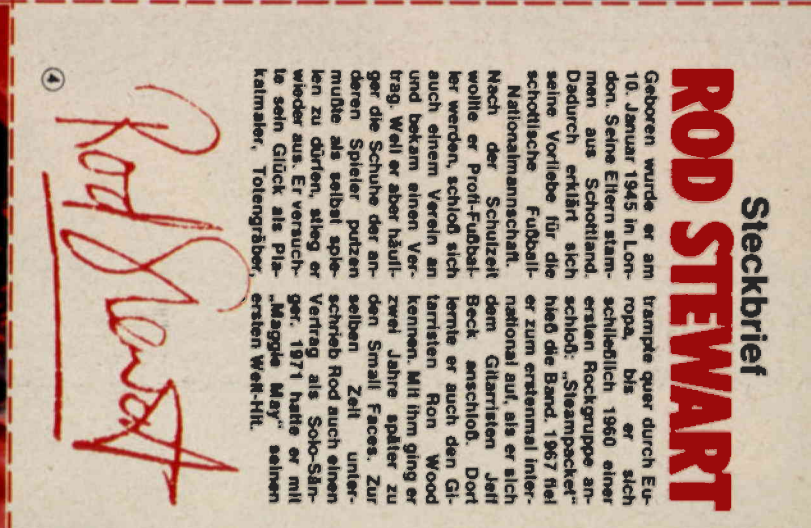 Steckbrief
ROD STEWART
Geboren wurde er am
10. Januar 1945 in Lon-
don. Seine Eltern stam-
men aus Schottland.
Dadurch erklärt sich
seine Vorliebe für die
schottische Fußball-
Nationalmannschaft.
Nach der Schulzeit
wollte er Profi-Fußbal-
ler werden, schloß sich
auch einem Verein an
und bekam einen Ver-
trag. Weil er aber häufi-
ger die Schuhe der an-
deren Spieler putzen
mußte als selbst spie-
len zu dürfen, stieg er
wieder aus. Er versuch-
te sein Glück als Pla-
katmaler, Totengräber,
trampte quer durch Eu-
ropa, bis er sich
schließlich 1960 einer
ersten Rockgruppe an-
schloß: „Steampacket“
hieß die Band. 1967 fiel
er zum erstenmal inter-
national auf, als er sich
dem Gitarristen Jeff
Beck anschloß. Dort
lernte er auch den Gi-
tarristen Ron Wood
kennen. Mit ihm ging er
zwei Jahre später zu
den Small Faces. Zur
selben Zeit unter-
schrieb Rod auch einen
Vertrag als Solo-Sän-
ger. 1971 hatte er mit
„Maggie May“ seinen
ersten Welt-Hit.
Rod Stewart
4